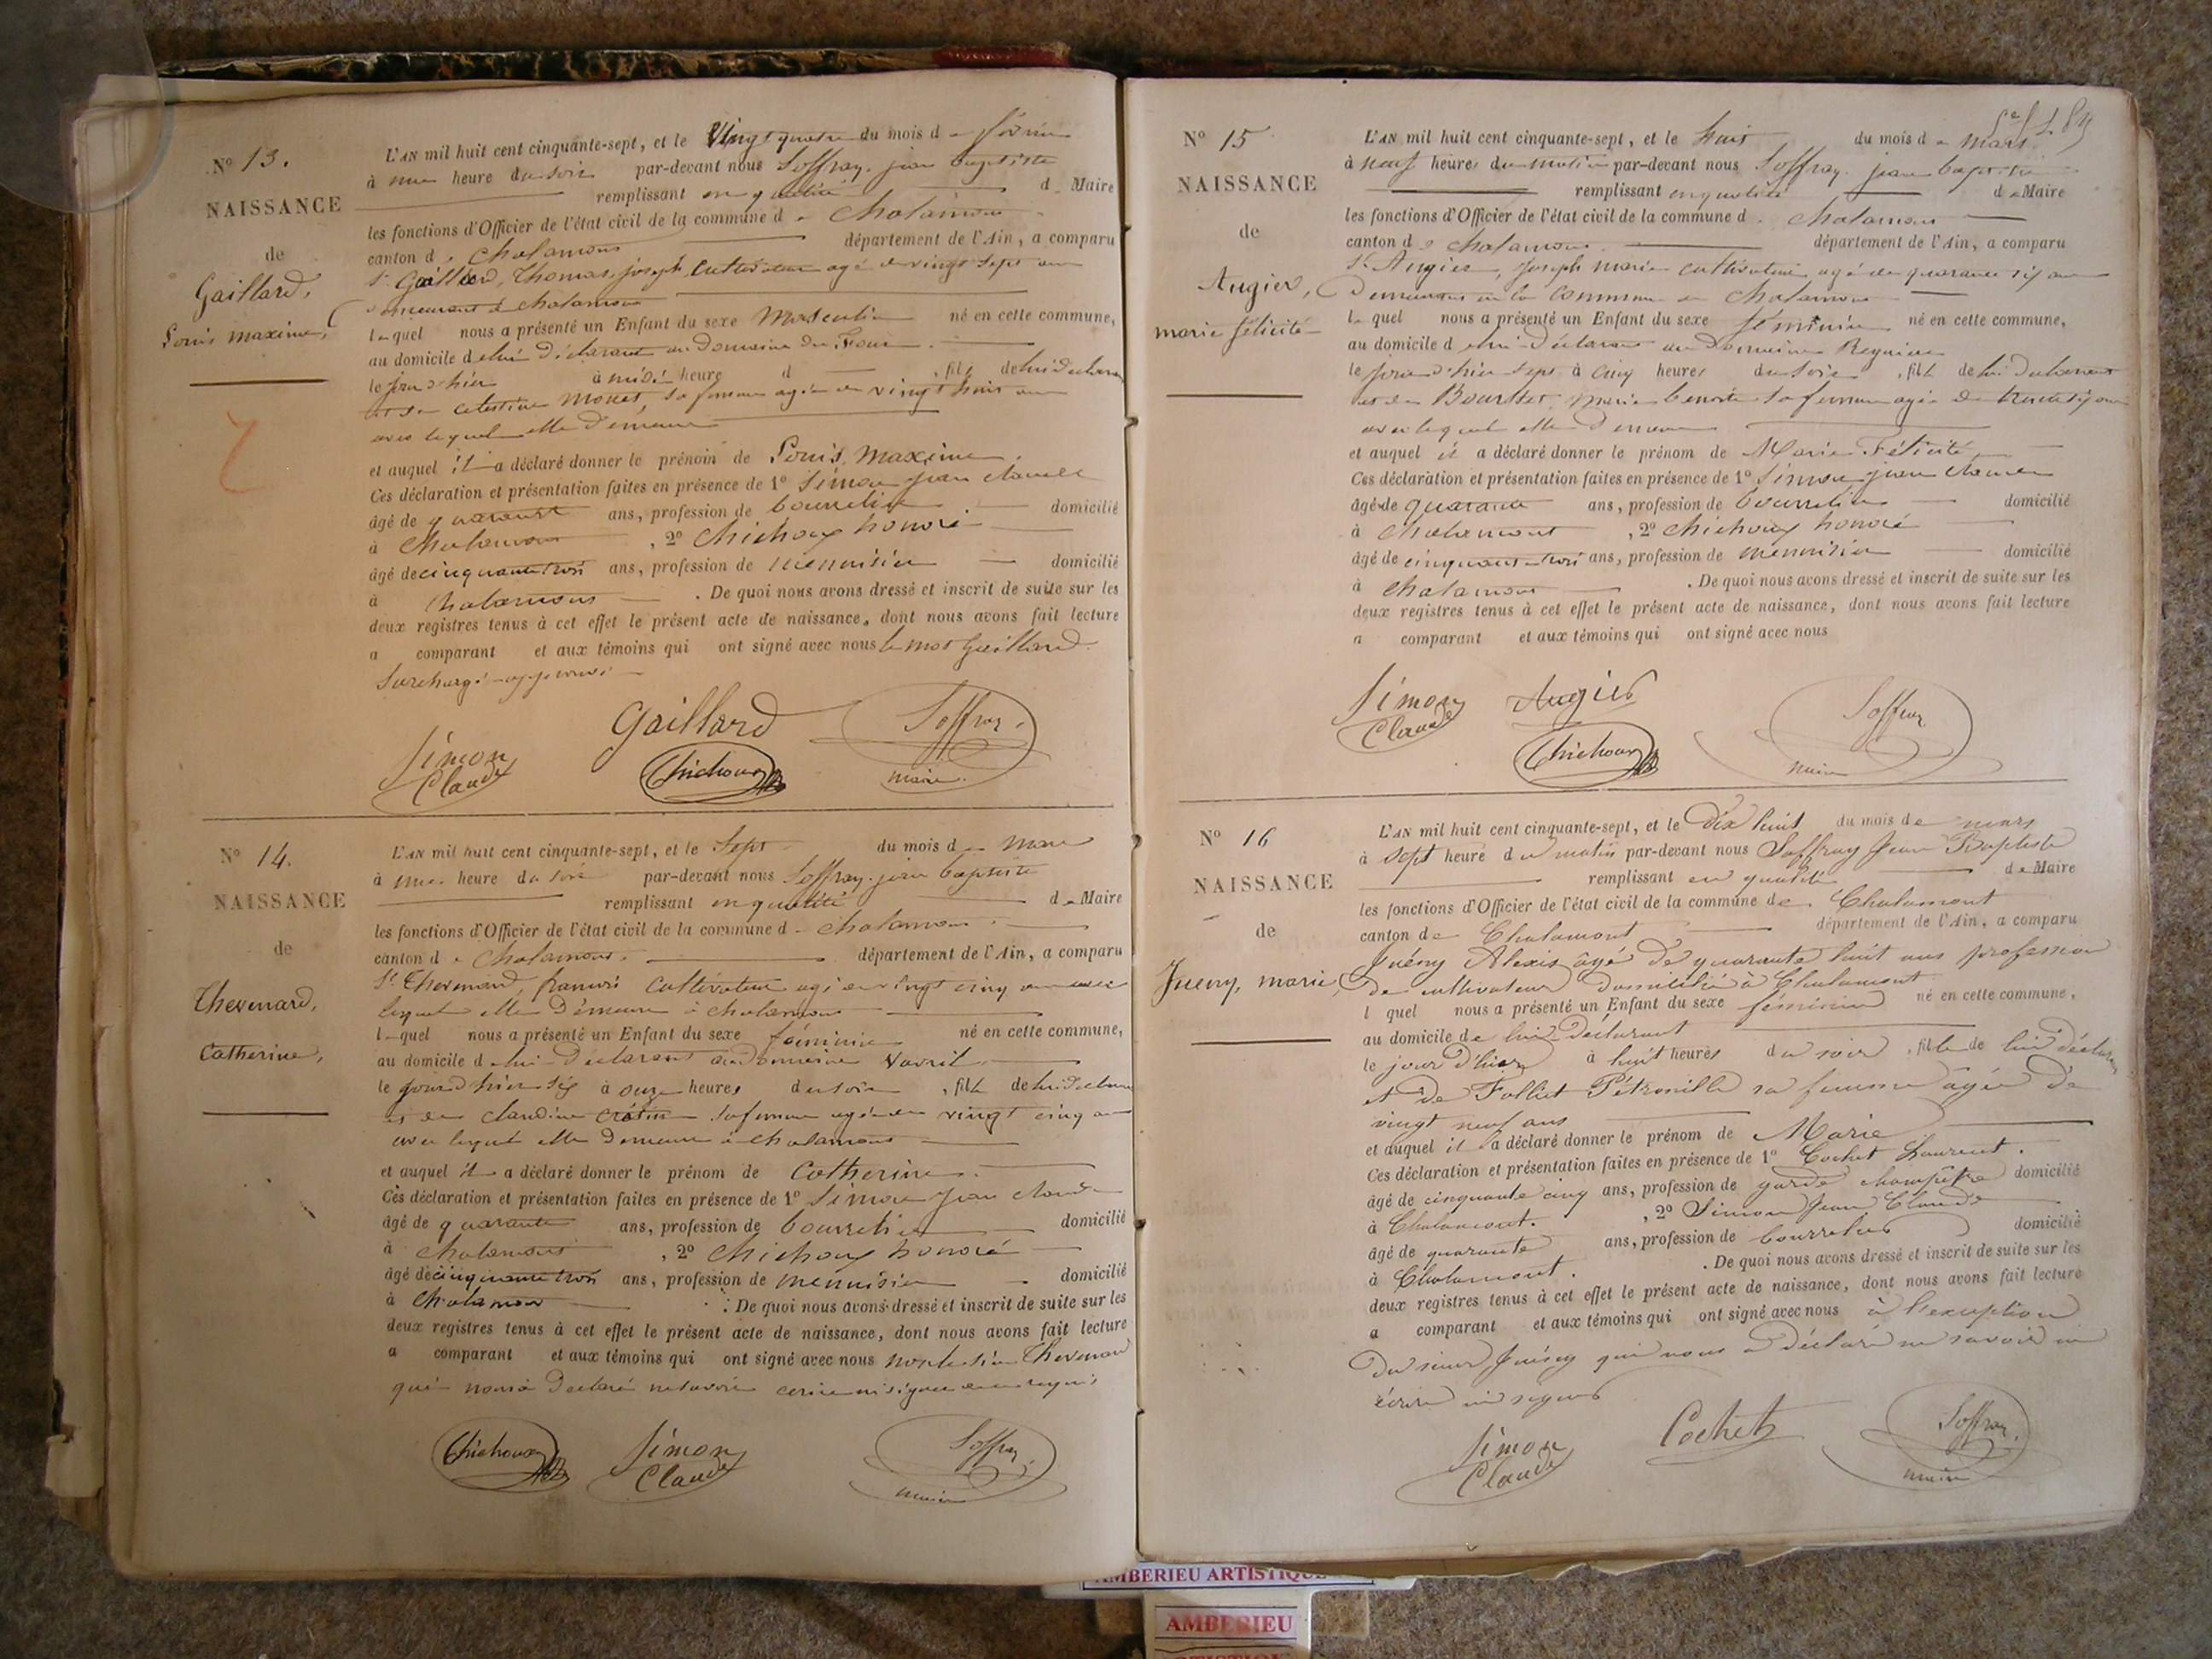 N° 13.
NAISSANCE
de
Gaillard,
Louis maxime,
L'AN mil huit cent cinquante-sept, et le Vingt quatre du mois de février
à une heure du soir par-devant nous Soffray jean baptiste
remplissant en qualité de Maire
les fonctions d'Officier de l'état civil de la commune de chalamont
canton de chalamont département de l'Ain, a comparu
sr Gaillard, Thomas joseph, cultivateur agé de vingt sept ans
demeurant à chalamont
lequel nous a présenté un Enfant du sexe Masculin né en cette commune,
au domicile de lui déclarant au Domaine du Four
le jour d'hier à midi heure d , fils de lui declarant
et de célestine Monet, sa femme agée de vingt huit ans
avec lequel elle demeure
et auquel il a déclaré donner le prénom de Louis Maxime.
Ces déclaration et présentation faites en présence de 1° Simon jean claude
âgé de quarante ans, profession de bourrelier domicilié
à Chalamont , 2° Chichoux honoré
âgé de cinquante trois ans, profession de menuisier domicilié
à Chalamont . De quoi nous avons dressé et inscrit de suite sur les
deux registres tenus à cet effet le présent acte de naissance, dont nous avons fait lecture
a comparant et aux témoins qui ont signé avec nous le mot Gaillard
surchargé approuvé
Gaillard Soffray
Simon Claude Chichoux maire
N° 14.
NAISSANCE
de
Thevenard,
Catherine,
L'AN mil huit cent cinquante-sept, et le Sept du mois de Mars
à une heure du soir par-devant nous Soffray jean baptiste
remplissant en qualité de Maire
les fonctions d'Officier de l'état civil de la commune de chalamont
canton de chalamont. département de l'Ain, a comparu
sr Thevenard, francois cultivateur agé de vingt cinq ans avec
lequel elle Demeure à chalamont
lequel nous a présenté un Enfant du sexe féminin né en cette commune,
au domicile de lui Déclarant au Domaine Vavril
le jour d'hier six à onze heures du soir , fille de lui declarant
et de claudine sa femme agée de vingt cinq ans
avec lequel elle Demeure à chalamont
et auquel il a déclaré donner le prénom de Catherine.
Ces déclaration et présentation faites en présence de 1° Simon jean claude
âgé de quarante ans, profession de bourrelier domicilié
à chalamont , 2° Chichoux honoré
âgé de cinquante trois ans, profession de menuisier domicilié
à Chalamont . De quoi nous avons dressé et inscrit de suite sur les
deux registres tenus à cet effet le présent acte de naissance, dont nous avons fait lecture
a comparant et aux témoins qui ont signé avec nous non le sieur Thevenard
qui nous a Declaré ne savoir ecrire ni signer de ce requis
Chichoux Simon Claude Soffray
maire
N° 15
NAISSANCE
de
Augier,
marie félicité
L'AN mil huit cent cinquante-sept, et le huit du mois de mars
à neuf heures du matin par-devant nous Soffray jean baptiste
remplissant en qualité de Maire
les fonctions d'Officier de l'état civil de la commune d chalamont
canton de chalamont. département de l'Ain, a comparu
sr Augier, joseph marie cultivateur agé de quarante six ans
Demeurant en la commune de Chalamont
lequel nous a présenté un Enfant du sexe féminin né en cette commune,
au domicile de lui Déclarant au Domaine
le jour d'hier sept à cinq heures du soir , fille de lui Declarant
et de marie benoite sa femme agée de trente six ans
avec lequel elle Demeure
et auquel il a déclaré donner le prénom de Marie Félicité
Ces déclaration et présentation faites en présence de 1° Simon jean claude
âgé de quarante ans, profession de bourrelier domicilié
à chalamont , 2° Chichoux honoré
âgé de cinquante trois ans, profession de menuisier domicilié
à Chalamont . De quoi nous avons dressé et inscrit de suite sur les
deux registres tenus à cet effet le présent acte de naissance, dont nous avons fait lecture
a comparant et aux témoins qui ont signé avec nous
Simon Claude Augier Soffray
Chichoux maire
N° 16
NAISSANCE
de
Jueny, marie,
L'AN mil huit cent cinquante-sept, et le Dix huit du mois de mars
à sept heure du matin par-devant nous Soffray Jean Baptiste
remplissant en qualité de Maire
les fonctions d'Officier de l'état civil de la commune de Chalamont
canton de Chalamont département de l'Ain, a comparu
Juény Alexis âgé de quarante huit ans profession
de cultivateur domicilié à Chalamont
l quel nous a présenté un Enfant du sexe féminin né en cette commune,
au domicile de lui Déclarant
le jour d'hier à huit heures du soir , fille de lui déclarant
et de Folliet Pétronille sa femme âgée de
vingt neuf ans
et auquel il a déclaré donner le prénom de Marie
Ces déclaration et présentation faites en présence de 1° Cochet Laurent.
âgé de cinquante cinq ans, profession de garde champêtre domicilié
à Chalamont. , 2° Simon Jean Claude
âgé de quarante ans, profession de bourrelier domicilié
à Chalamont. . De quoi nous avons dressé et inscrit de suite sur les
deux registres tenus à cet effet le présent acte de naissance, dont nous avons fait lecture
a comparant et aux témoins qui ont signé avec nous à l'exception
du sieur Juény qui nous a déclaré ne savoir ni
écrire ni signer
Simon Claude Cochet Soffray
maire
AMBERIEU ARTISTIQUE
AMBERIEU
ARTISTIQUE